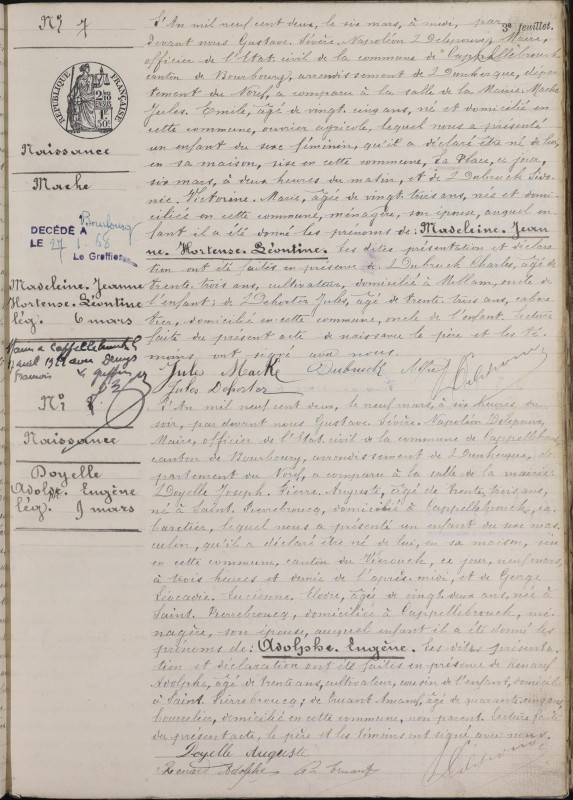 3e feuillet.
No 7
RÉPUBLIQUE FRANÇAISE
Naissance
Mache
DÉCÉDÉ À Bourbourg
LE 27 1. 68
Le Greffier
Madeleine. Jeanne
Hortense. Léontine
lég. 6 mars
L'An mil neuf cent deux, le six mars, à midi, par
devant nous Gustave. Sévère. Napoléon Maire,
officier de l'Etat civil de la commune de Cappellebrouck
canton de Bourbourg, arrondissement de Dunkerque, dépar
tement du Nord, a comparu à la salle de la Mairie: Mache
Jules. Emile, âgé de vingt cinq ans, né et domicilié en
cette commune, ouvrier agricole, lequel nous a présenté
un enfant du sexe féminin, qu'il a déclaré être né de lui,
en sa maison, sise en cette commune, La Place, ce jour,
six mars, à deux heures du matin, et de Dubruck
Victorine. Marie, âgée de vingt trois ans, née et domi
ciliée en cette commune, ménagère, son épouse, auquel en
fant il a été donné les prénoms de: Madeleine. Jean
ne. Hortense. Léontine. Les dites présentation et déclara
tion ont été faites en présence de: Dubruck Charles, âgé de
trente trois ans, cultivateur, domicilié à oncle de
l'enfant; de Dehorter Jules, âgé de trente trois ans, cabare
tier, domicilié en cette commune, oncle de l'enfant. Lecture
faite du présent acte de naissance le père et les té
moins ont signé avec nous.
Jules Mache Dubruck
Jules Dehorter
No
Naissance
Doyelle
Adolphe. Eugène
lég. 9 mars
L'An mil neuf cent deux, le neuf mars, à six heures du
soir, par devant nous Gustave. Sévère. Napoléon
Maire, officier de l'Etat civil de la commune de Cappellebrouck
canton de Bourbourg, arrondissement de Dunkerque, dé
partement du Nord, a comparu à la salle de la mairie:
Doyelle Joseph. Pierre. Auguste, âgé de trente trois ans,
né à Saint. Pierrebroucq, domicilié à Cappellebrouck, ca
baretier, lequel nous a présenté un enfant du sexe mas
culin, qu'il a déclaré être né de lui, en sa maison, sise
en cette commune, ce jour, neuf mars,
à trois heures et demie de l'après-midi, et de
Léocadie. Lucienne. âgée de vingt deux ans, née à
Saint. Pierrebroucq, domiciliée à Cappellebrouck, mé
nagère, son épouse, auquel enfant il a été donné les
prénoms de: Adolphe. Eugène. Les dites présenta
tion et déclaration ont été faites en présence de
Adolphe, âgé de trente ans, cultivateur, cousin de l'enfant, domicilié
à Saint. Pierrebroucq; de âgé de quarante cinq ans,
domicilié en cette commune, non parent. Lecture faite
du présent acte, le père et les témoins ont signé avec nous.
Doyelle Auguste
Adolphe